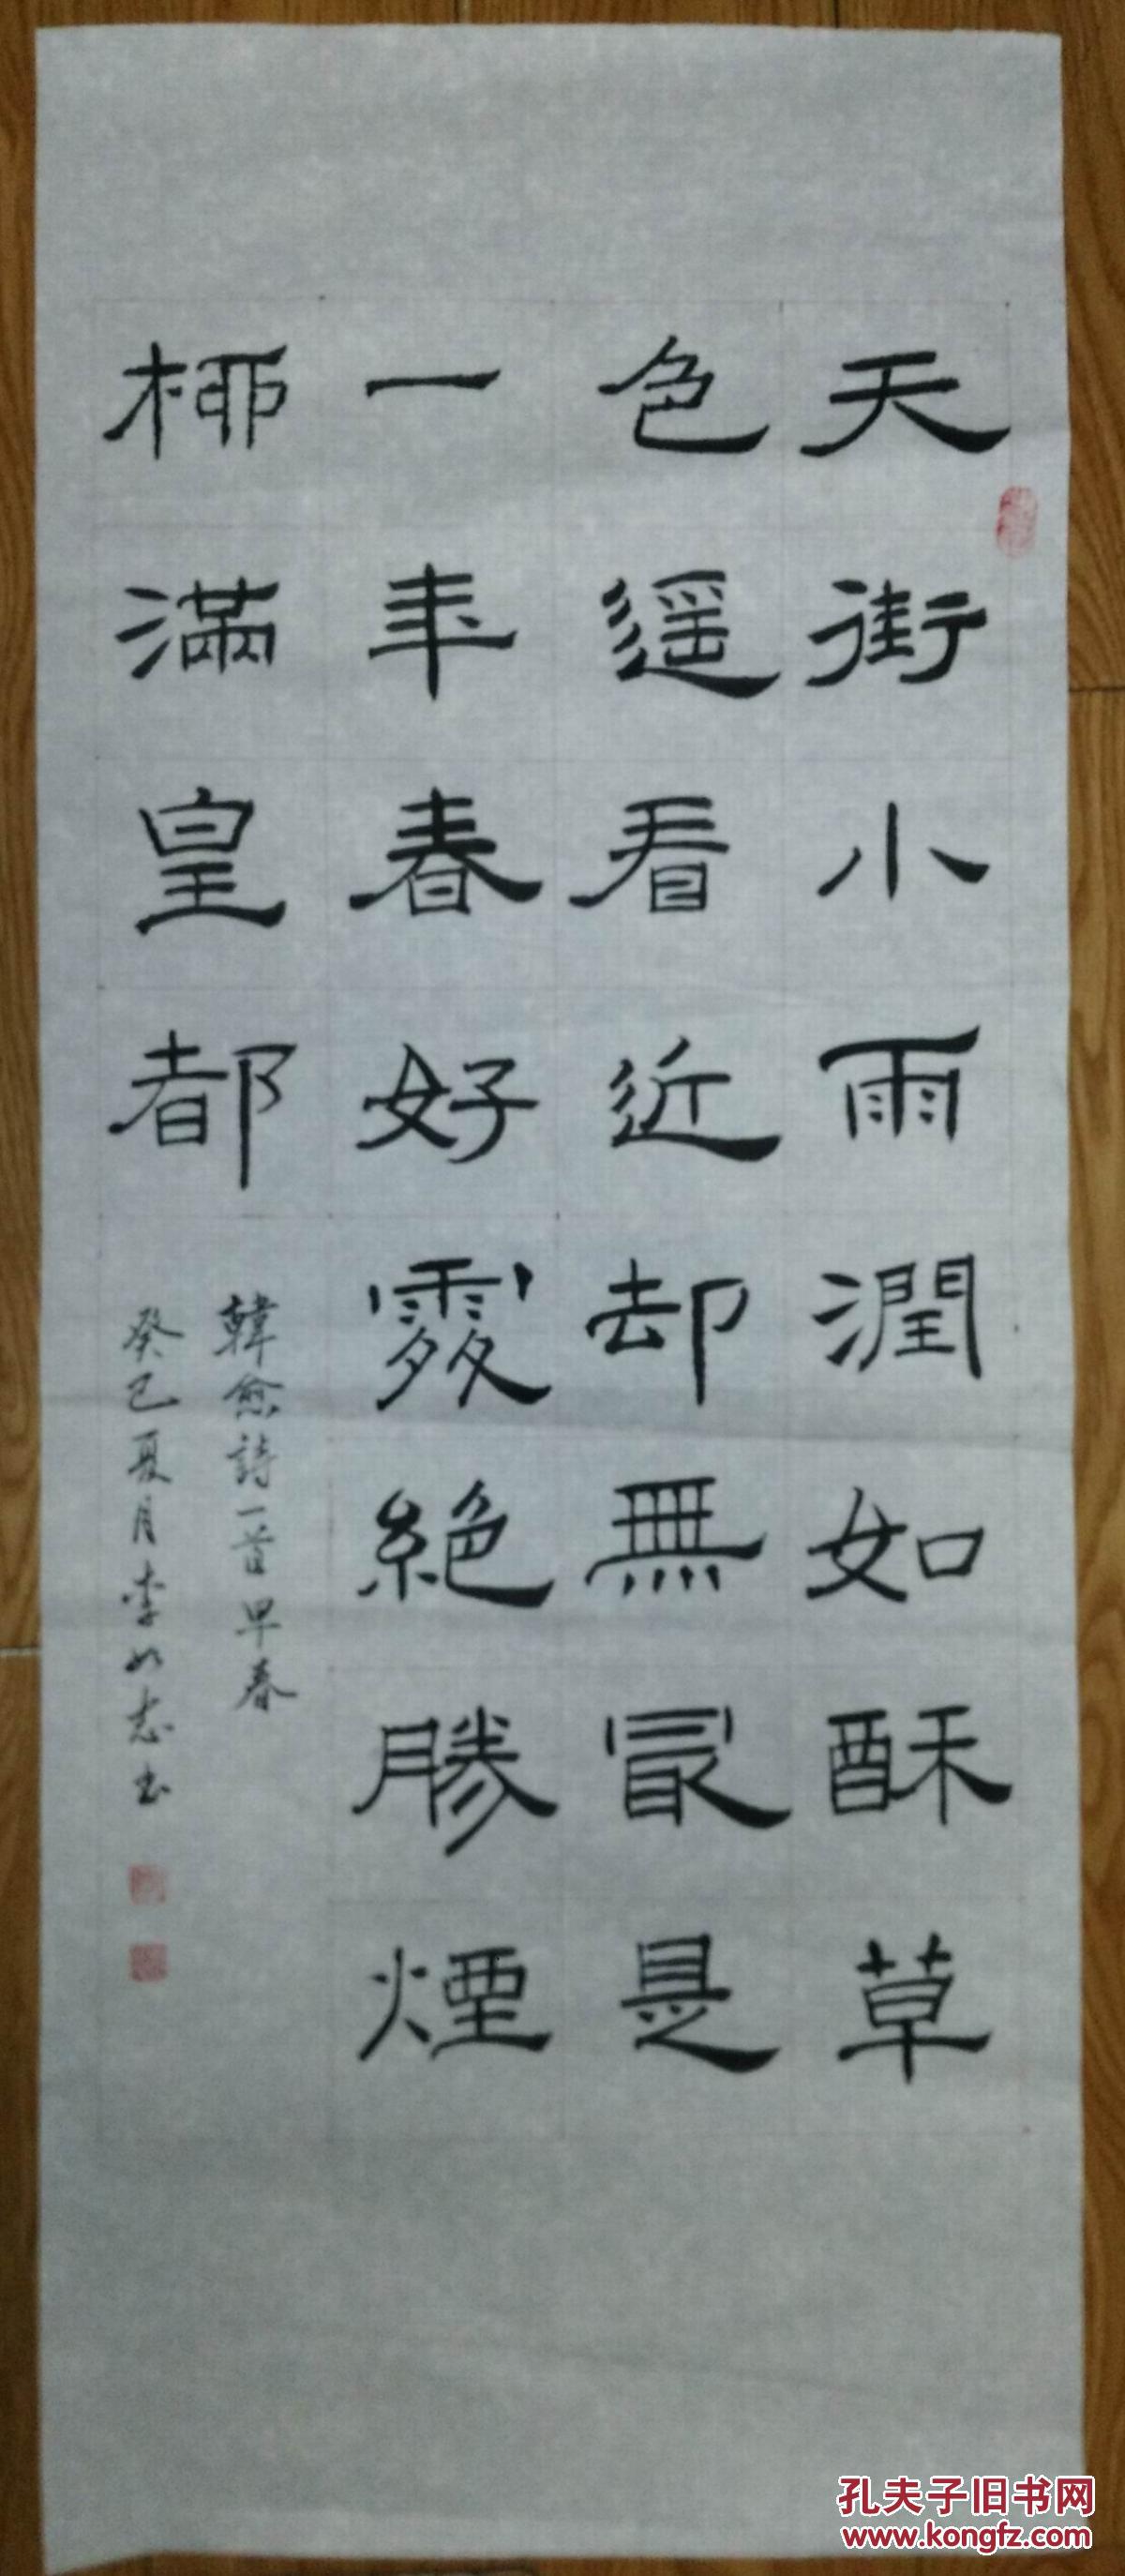 天街小雨潤如酥草
色遥看近却無最是
一年春好處絕勝煙
柳滿皇都
韓愈詩一首早春
癸巳夏月李如志书
孔夫子旧书网
www.kongfz.com